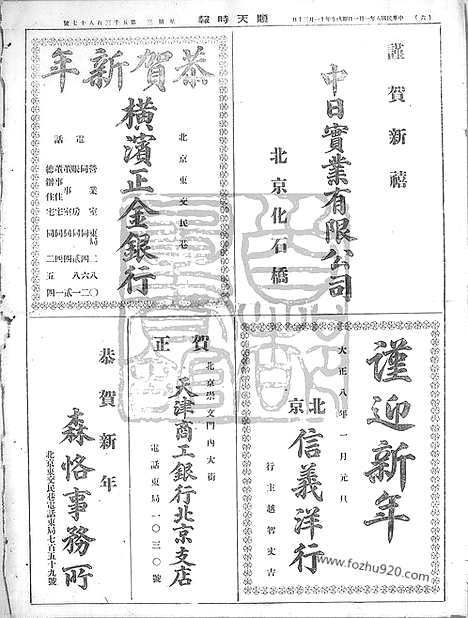 （六）
中華民國八年一月一日 即戊午年十一月三十日
順天時報
星期三 第五千三百八十七號
謹賀新禧
中日實業有限公司
北京化石橋
恭賀新年
北京東交民巷
橫濱正金銀行
電話
謹迎新年
大正八年一月元旦
北京
信義洋行
行主越智丈吉
賀正
北京崇文門內大街
天津商工銀行北京支店
電話東局一〇三〇號
恭賀新年
森恪事務所
北京東交民巷電話東局七百五十九號
www.fozhu920.com